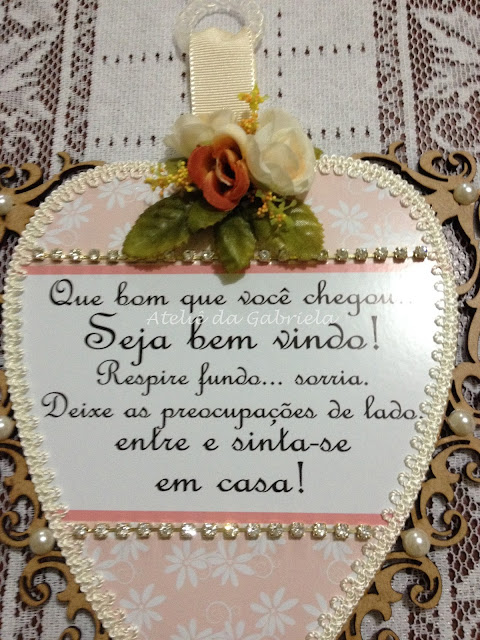 Que bom que você chegou..
Ateliê da Gabriela
Seja bem vindo!
Respire fundo... sorria.
Deixe as preocupações de lado.
entre e sinta-se
em casa!